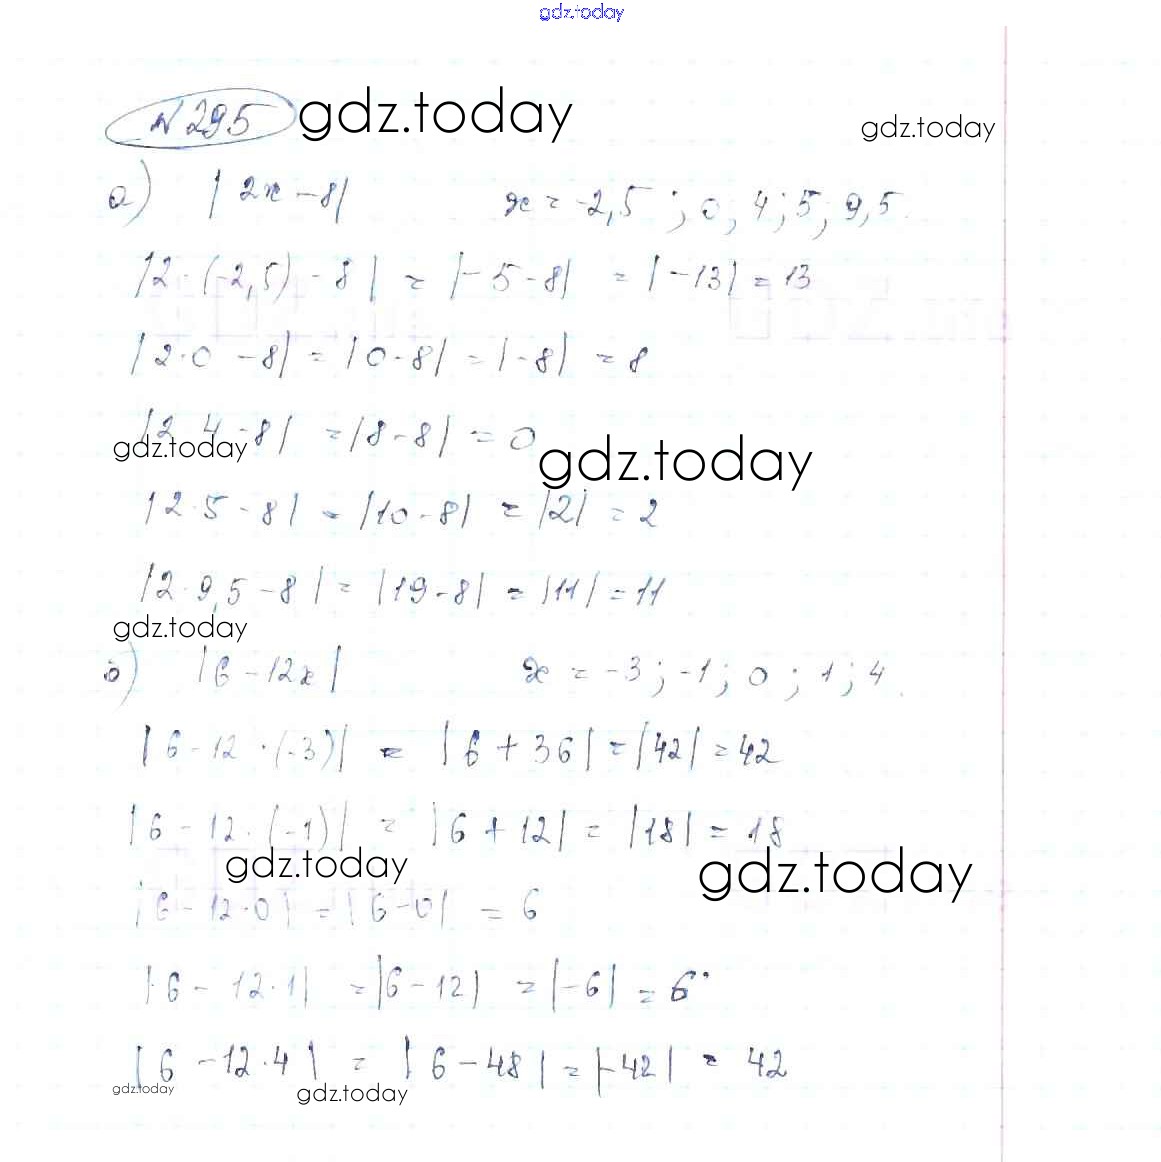 gdz.today
№ 295 gdz.today
gdz.today
а) |2x - 8| x = -2,5; 0; 4; 5; 9,5.
|2 · (-2,5) - 8| = |-5 - 8| = |-13| = 13
|2 · 0 - 8| = |0 - 8| = |-8| = 8
|2 · 4 - 8| = |8 - 8| = 0
gdz.today gdz.today
|2 · 5 - 8| = |10 - 8| = |2| = 2
|2 · 9,5 - 8| = |19 - 8| = |11| = 11
gdz.today
б) |6 - 12x| x = -3; -1; 0; 1; 4.
|6 - 12 · (-3)| = |6 + 36| = |42| = 42
|6 - 12 · (-1)| = |6 + 12| = |18| = 18
gdz.today gdz.today
|6 - 12 · 0| = |6 - 0| = 6
|6 - 12 · 1| = |6 - 12| = |-6| = 6
|6 - 12 · 4| = |6 - 48| = |-42| = 42
gdz.today gdz.today